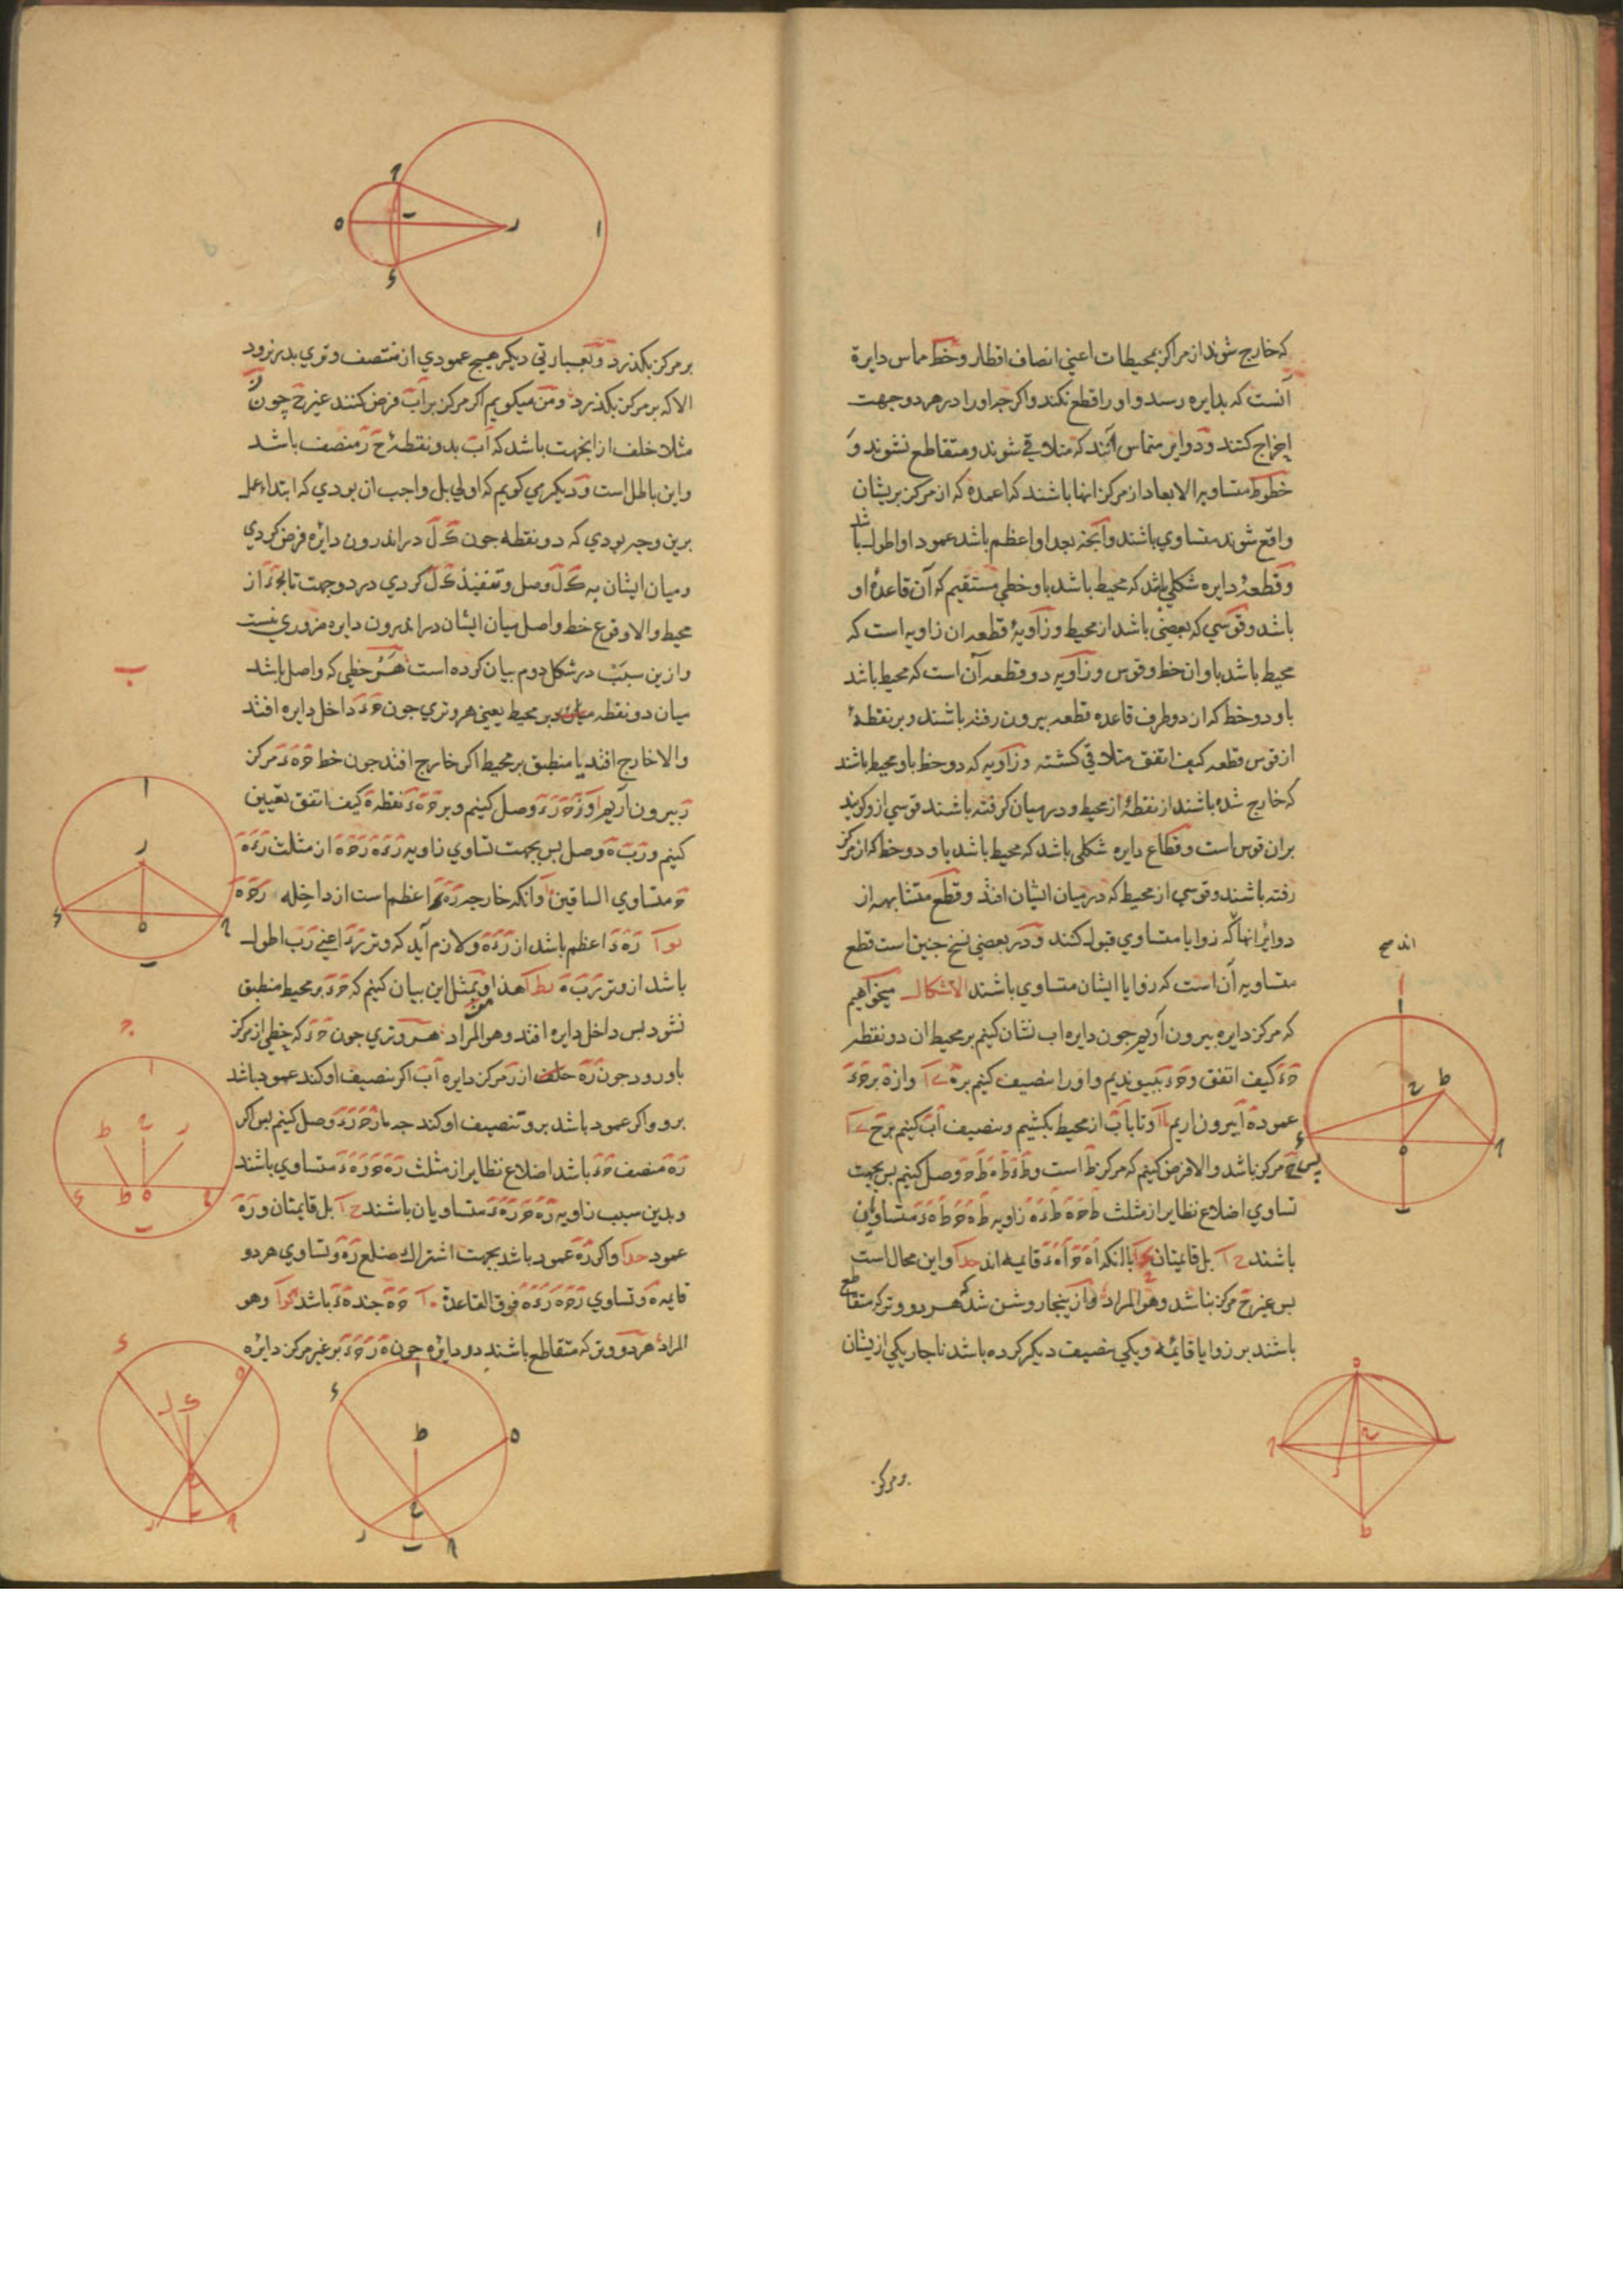 که خارج شوند از مراکز بمحیطات اعنی انصاف اقطار و خط مماس دایره
آنست که بدایره رسد و او را قطع نکند و اکر چه او را در هر دو جهت
اخراج کنند و دوایر متماس آنند که متلاقی شوند و متقاطع نشوند و
خطوط متساویة الابعاد از مرکز انها باشند که اعمده که از مرکز بریشان
واقع شوند متساوی باشند و آنچه بعد او اعظم باشد عمود او اطول باشد
و قطعهٔ دایره شکلی باشد که محیط باشد باو خطی مستقیم که آن قاعدهٔ او
باشد و قوسی که بعضی باشد از محیط و زاویهٔ قطعه ان زاویه است که
محیط باشد باو ان خط و قوس و زاویه در قطعه آن است که محیط باشد
باو دو خط که از دو طرف قاعده قطعه بیرون رفته باشند و بر نقطهٔ
از قوس قطعه کیف اتفق متلاقی کشته و زاویه که دو خط باو محیط باشند
که خارج شده باشند از نقطهٔ از محیط و در میان کرفته باشند قوسی از و کویند
بران قوس است و قطاع دایره شکلی باشد که محیط باشد باو دو خط که از مرکز
رفته باشند و قوسی از محیط که در میان ایشان افتد و قطع متشابهه از
دوایر انهااند که زوایا متساوی قبول کنند و در بعضی نسخ چنین است قطع
متساویه آن است که زوایا ایشان متساوی باشند الاشکال میخواهیم
که مرکز دایره بیرون آوریم چون دایره اب نشان کنیم بر محیط ان دو نقطه
حَ دَ کیف اتفق و حَ دَ بپیوندیم و او را تنصیف کنیم بر هَ و از هَ بر حَ دَ
عمود هَ اَ بیرون اریم و تا با بَ از محیط بکشیم و تنصیف اَبَ کنیم بر حَ
پس حَ مرکز باشد و الا فرض کنیم که مرکز طَ است و طَ دَ طَ هَ طَ حَ وصل کنیم پس بجهت
تساوی اضلاع نظایر از مثلث طَ حَ هَ طَ دَ هَ زاویه طَ هَ حَ طَ هَ دَ متساویان
باشند بل قایمتان با انکه اَ هَ حَ اَ هَ دَ قایمه اند و این محال است
پس غیر حَ مرکز نباشد و هو المراد و از ینجا روشن شد که هر دو وتر که متقاطع
باشند بر زوایا قائمه و یکی تنصیف دیکر کرده باشد ناچار یکی از یشان
بر مرکز
بر مرکز بکذرد و بعبارتی دیکر هیچ عمودی از منتصف وتری بدر نرود
الا که بر مرکز بکذرد و من میکویم اکر مرکز بر اَبَ فرض کنند غیر حَ چون نَ
مثلا خلف از انجهت باشد که اَبَ بدو نقطهٔ حَ نَ منصف باشد
و این باطل است و دیکر می کویم که اولی بل واجب ان بودی که ابتداء عمل
برین وجه بودی که دو نقطه چون کَ لَ در اندرون دایره فرض کردی
و میان ایشان به کَ لَ وصل و تنفیذ کَ لَ کردی در دو جهت تا بحَ دَ از
محیط و الا وقوع خط واصل میان ایشان در اندرون دایره ضروری نیست
و از ین سبب در شکل دوم بیان کرده است هر خطی که واصل باشد
میان دو نقطه بر محیط یعنی هر وتری چون حَ دَ داخل دایره افتد
و الا خارج افتد یا منطبق بر محیط اکر خارج افتد چون خط حَ هَ دَ مرکز
رَ بیرون آریم و رَ حَ رَ دَ وصل کنیم و بر حَ هَ دَ نقطه هَ کیف اتفق تعیین
کنیم و رَ بَ هَ وصل پس بجهت تساوی زاویه رَ دَ هَ رَ حَ هَ از مثلث رَ دَ
حَ متساوی الساقین و انکه خارجه رَ هَ دَ اعظم است از داخله رَ حَ هَ
رَ هَ دَ اعظم باشد از رَ دَ هَ و لازم آید که وتر رَ دَ اعنی رَ بَ اطول
باشد از وتر رَ بَ هَ هذا خلف و بمثل این بیان کنیم که حَ دَ بر محیط منطبق
نشود پس داخل دایره افتد و هو المراد هر وتری چون حَ دَ که خطی از مرکز
باو رود چون رَ هَ از رَ مرکز دایره اَبَ اکر تنصیف او کند عمود باشد
برو و اکر عمود باشد برو تنصیف او کند چه ما رَ حَ رَ دَ وصل کنیم پس اکر
رَ هَ منصف حَ دَ باشد اضلاع نظایر از مثلث رَ هَ حَ رَ هَ دَ متساوی باشند
و بدین سبب زاویه رَ هَ حَ رَ هَ دَ متساویان باشند بل قایمتان و رَ هَ
عمود و اکر رَ هَ عمود باشد بجهت اشتراک ضلع رَ هَ و تساوی هر دو
قایمه هَ و تساوی رَ حَ هَ رَ دَ هَ فوق القاعدة حَ هَ چند هَ دَ باشد و هو
المراد هر دو وتر که متقاطع باشند در دایره چون هَ رَ حَ دَ بر غیر مرکز دایره